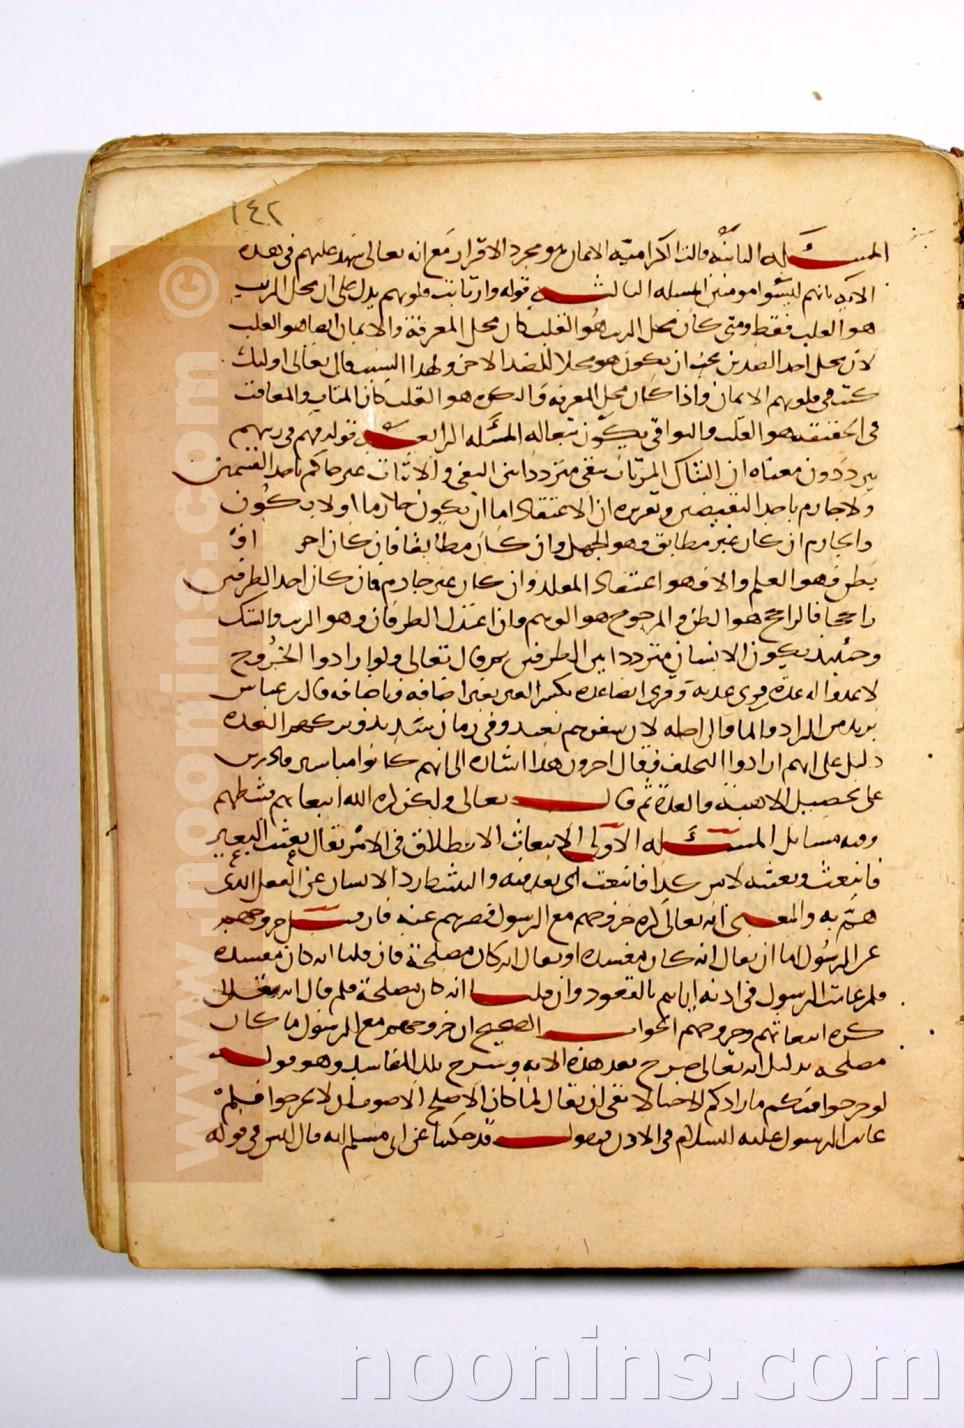 ١٤٢
المسئله الثانية قالت الكرامية الايمان هو مجرد الاقرار مع انه تعالى شهد عليهم في هذه
الاية بانهم ليسوا مومنين المسئله الثالثه قوله وارتابت قلوبهم يدل على ان محل الريب
هو القلب فقط ومتى كان محل الريب هو القلب كان محل المعرفة والايمان ايضا هو القلب
لان محل احد الضدين يجب ان يكون هو محلا للضد الاخر ولهذا السبب قال تعالى اوليك
كتب في قلوبهم الايمان واذا كان محل المعرفة والكفر هو القلب كان المثاب والمعاقب
في الحقيقة هو القلب والبواقي يكون تبعا له المسئله الرابعه قوله فهم في ريبهم
يترددون معناه ان الشاك المرتاب يبقى مترددا بين النفي والاثبات غير حاكم باحد القسمين
ولا جازم باحد النقيضين وتقريره ان الاعتقاد اما ان يكون جازما او لا يكون
والجازم ان كان غير مطابق فهو الجهل وان كان مطابقا فان كان
فهو العلم والا فهو اعتقاد المقلد وان كان غير جازم فان كان احد الطرفين
راجحا فالراجح هو الظن والمرجوح هو الوهم وان اعتدل الطرفان وهو الريب والشك
وحينئذ يكون الانسان مترددا بين الطرفين ثم قال تعالى ولو ارادوا الخروج
لاعدوا له عدة قرئ عده وقرئ ايضا عده بكسر العين بغير اضافه وباضافه قال بن عباس
يريد من الزاد والما والراحله لان سفرهم بعيد وفي زمان شديد وتركهم العدة
دليل على انهم ارادوا التخلف وقال اخرون هذا اشاره الى انهم كانوا مياسير قادرين
على تحصيل الاهبة والعدة ثم قال تعالى ولكن كره الله انبعاثهم فثبطهم
وفيه مسائل المسئله الاولى الانبعاث الانطلاق في الامر يقال بعثت البعير
فانبعث وبعثته لامر كذا فانبعث اى نفذ فيه والتثبط رد الانسان عن الفعل الذى
هم به والمعنى انه تعالى كره خروجهم مع الرسول فصرفهم عنه فان قيل خروجهم
عن الرسول اما ان يقال انه كان مفسده او يقال انه كان مصلحة فان قلنا انه كان مفسده
فلم عاتب الرسول في اذنه اياهم بالقعود وان قلنا انه كان مصلحة فلم قال انه تعالى
كره انبعاثهم وخروجهم الجواب الصحيح ان خروجهم مع الرسول ما كان
مصلحه بدليل انه تعالى صرح بعد هذه الاية وشرح تلك المفاسد وهو قوله
لو خرجوا فيكم ما زادوكم الا خبالا بقى ان يقال لما كان الاصلح الاصوب ان لا يخرجوا فلم
عاتب الرسول عليه السلام في الاذن فنقول قد حكينا عن ابى مسلم انه قال ليس في قوله
© www.noonins.com
noonins.com